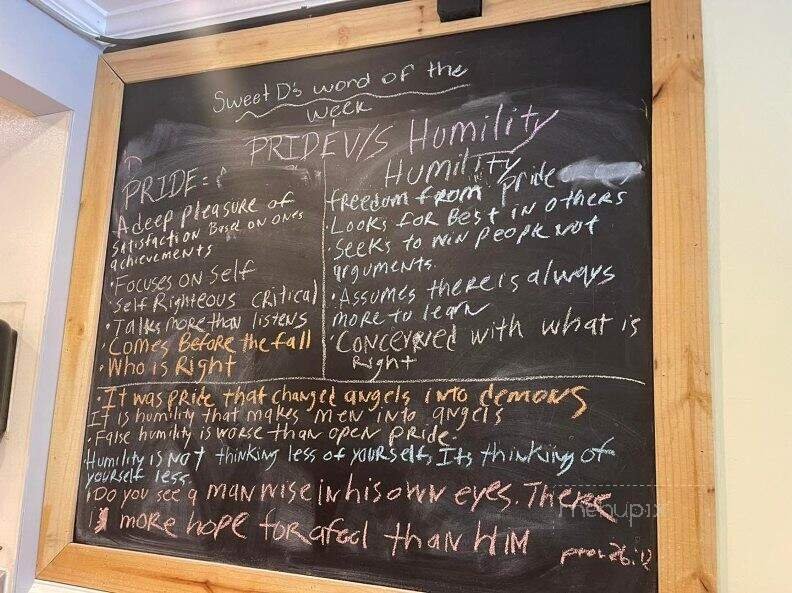 Sweet D's word of the
week
PRIDE V/S Humility
PRIDE = {
A deep pleasure of
satisfaction Based on ones
achievements
• Focuses on self
Self Righteous critical
• Talks more than listens
• Comes Before the fall
• Who is Right
Humility
freedom from pride
• Looks for Best in others
• Seeks to win people not
arguments.
• Assumes there is always
more to learn
• Concerned with what is
Right
• It was pride that changed angels into demons
It is humility that makes men into angels
• False humility is worse than open pride.
Humility is not thinking less of yourself, Its thinking of
yourself less.
• Do you see a man wise in his own eyes. There
is more hope for a fool than HIM
prov 26:12
menupix